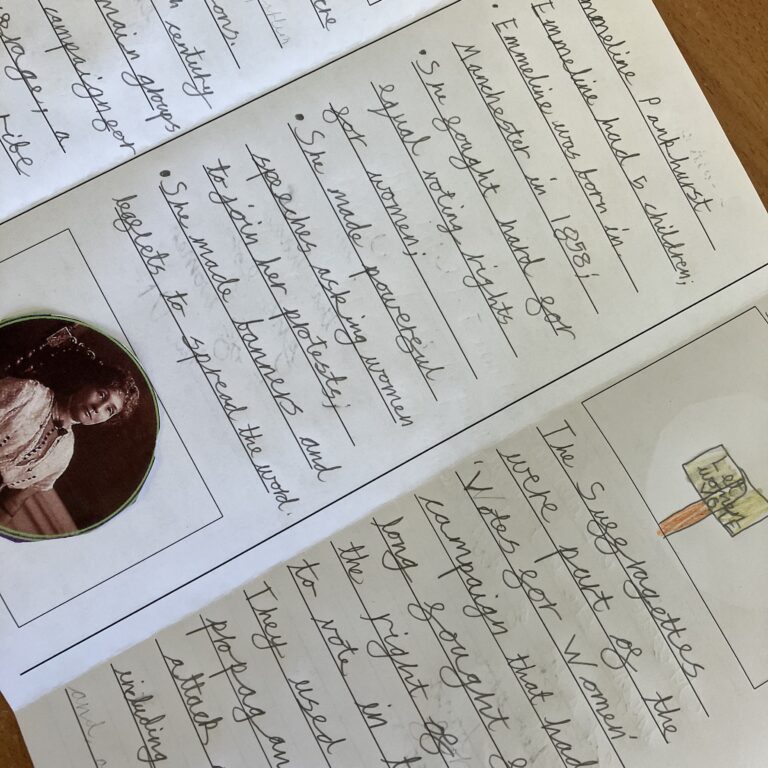 ons.
century
main groups
campaigned
mmeline Pankhurst
Emmeline had 5 children;
• Emmeline was born in
Manchester in 1858;
• She fought hard for
equal voting rights
for women;
• She made powerful
speeches asking women
to join her protests;
• She made banners and
leaflets to spread the word.
The Suffragettes
were part of the
'Votes for Women'
campaign that had
long fought
the right of
to vote in
They used
propagan
attack
including
and